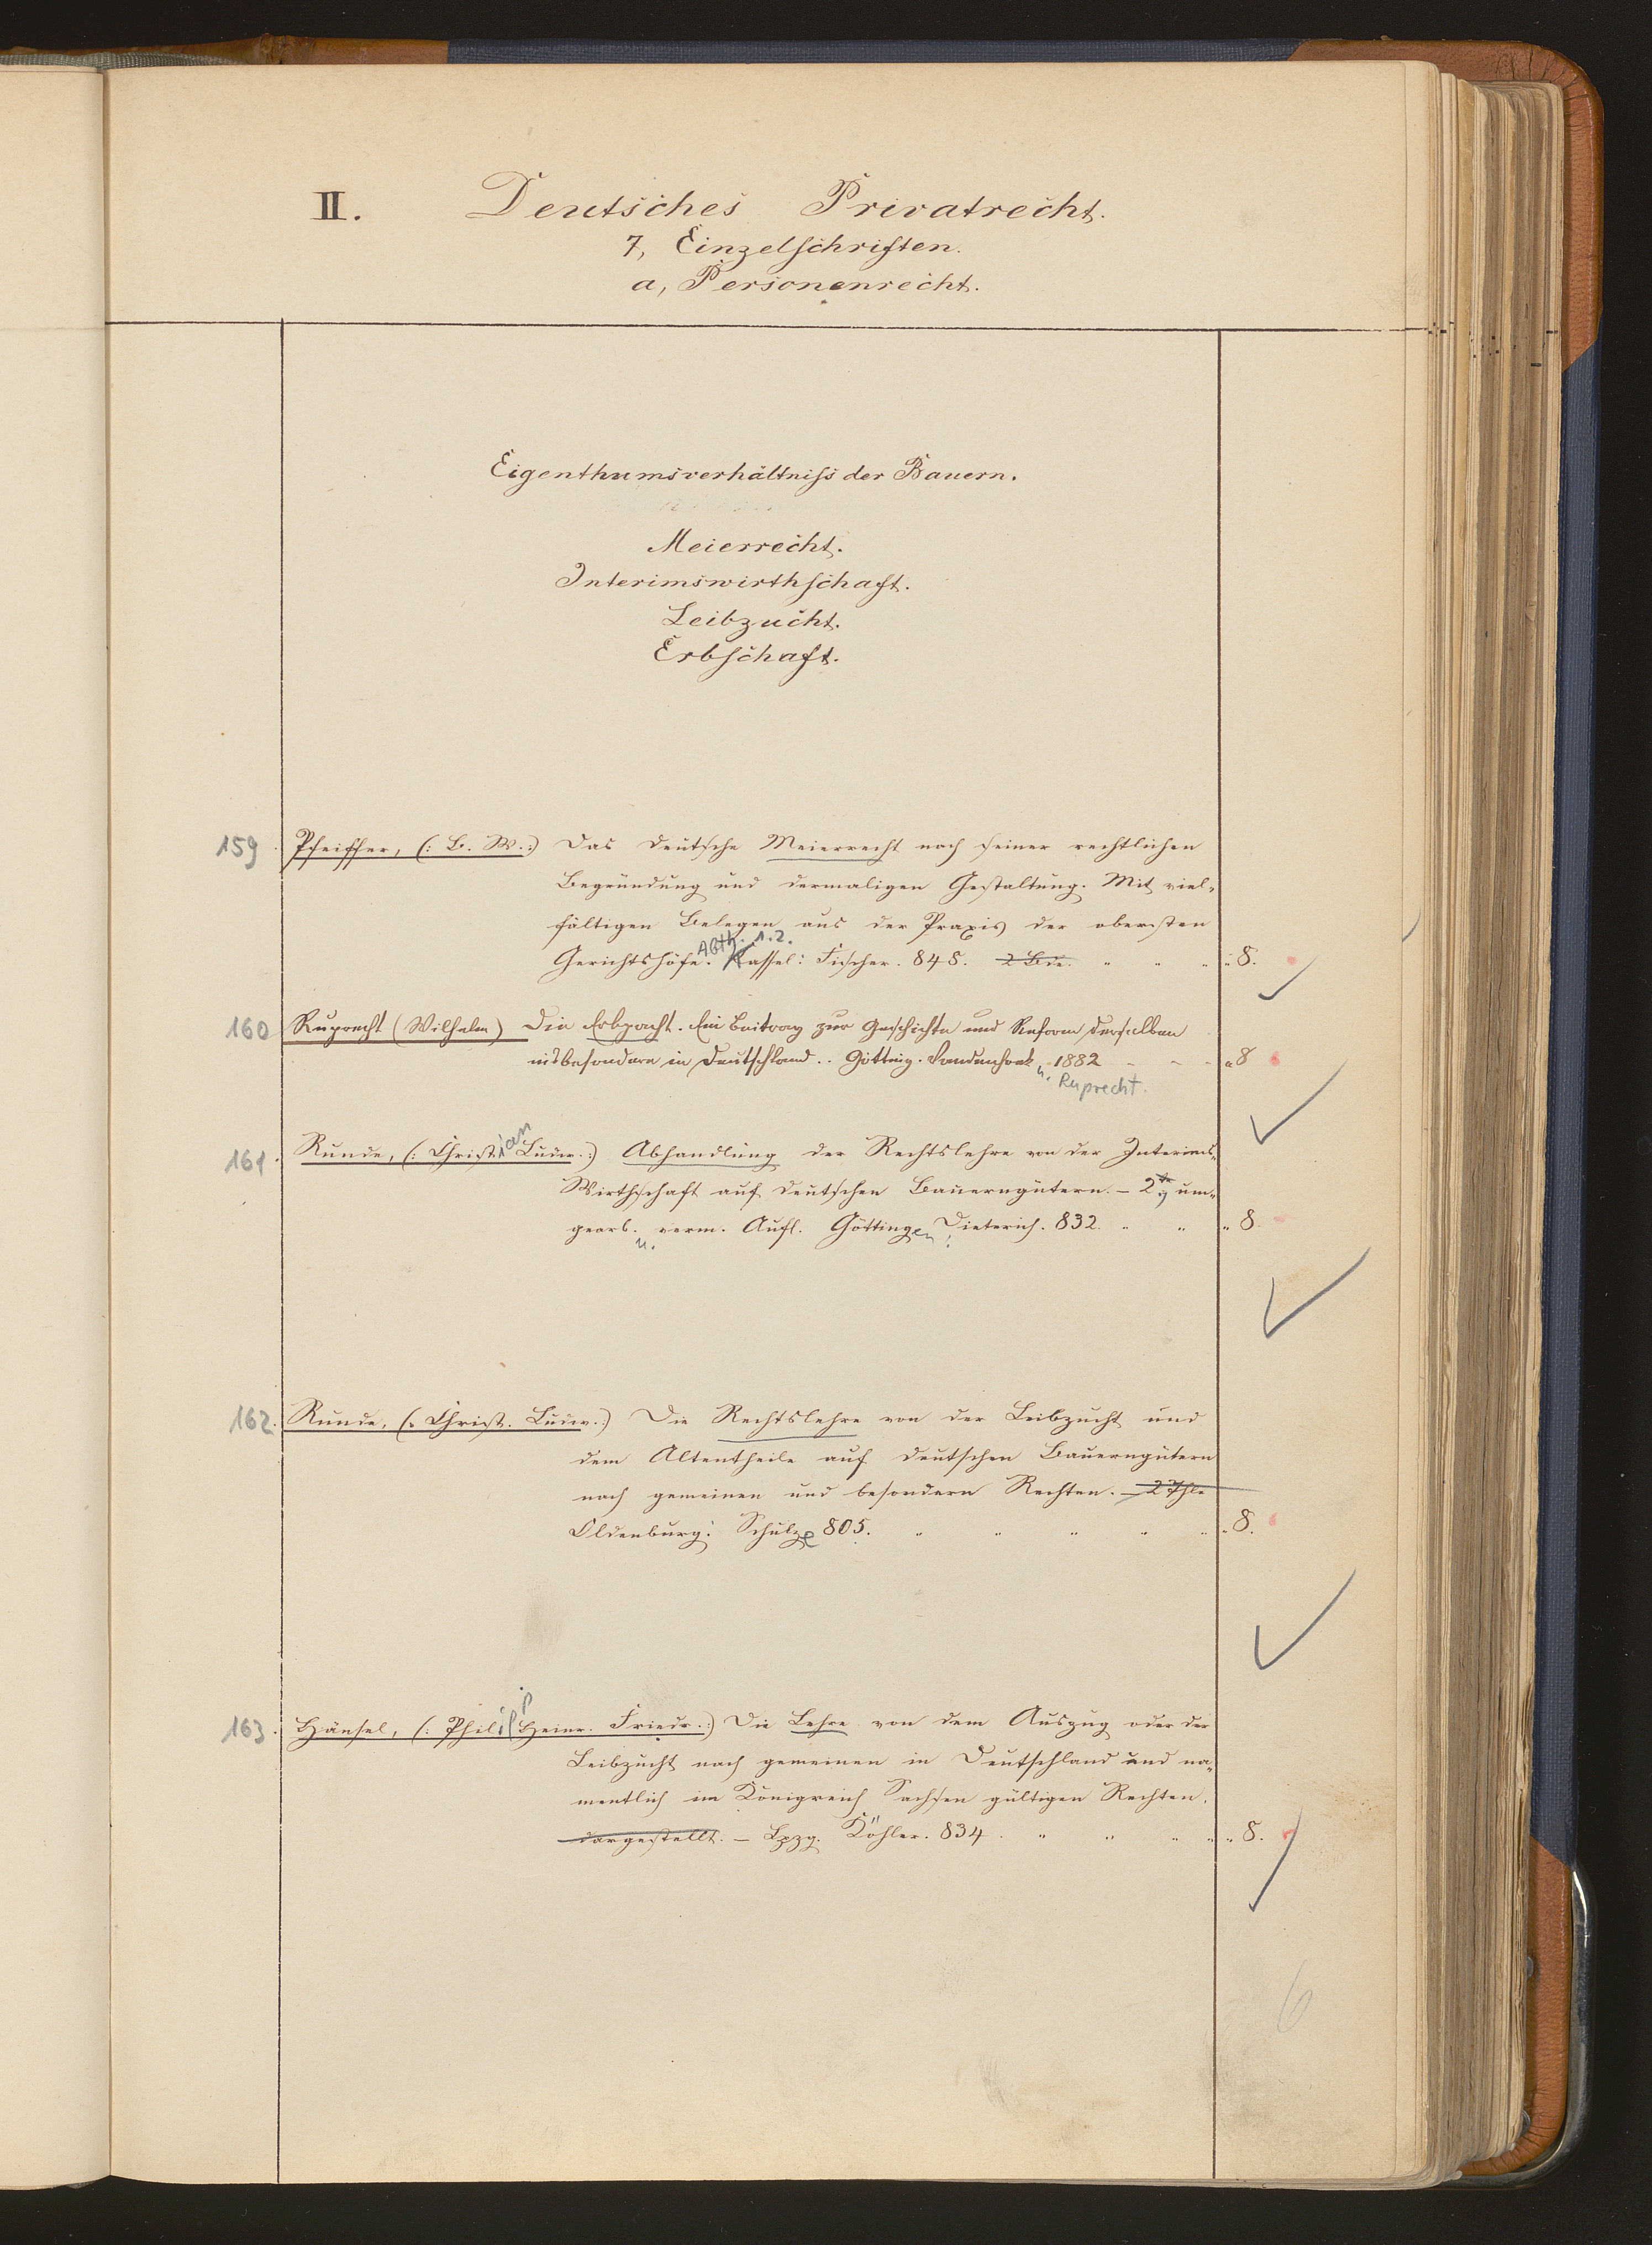 II. Deutsches Privatrecht.
7, Einzelschriften.
a, Personenrecht.
Eigenthumsverhältniſs der Bauern.
Meierrecht.
Interimswirthſchaft.
Leibzucht.
Erbſchaft.
159 Pfeiffer, (: B. W. :) Das deutsche Meierrecht nach seiner rechtlichen
Begründung und dermaligen Gestaltung. Mit viel-
fältigen Belegen aus der Praxis der obersten
Abth. 1.2.
Gerichtshöfe. Kassel: Fischer. 848. 2 Bde. " " " " 8.
160 Ruprecht (Wilhelm) Die Erbpacht. Ein Beitrag zur Geschichte und Reform derselben
insbesondere in Deutschland.. Götting. Vandenhoek 1882 - - - " 8
u. Ruprecht.
161. Runde, (: Christian Ludw. :) Abhandlung der Rechtslehre von der Interims-
Wirthschaft auf deutschen Bauerngütern. – 2te um-
gearb. u. verm. Aufl. Göttingen: Dieterich. 832. " " " 8.
162. Runde, (: Christ. Ludw. :) Die Rechtslehre von der Leibzucht und
dem Altentheile auf deutschen Bauerngütern
nach gemeinen und besondern Rechten. – 2 Thle
Oldenburg: Schulze 805. " " " " " " 8.
163. Hänsel, (: Philipp Heinr. Friedr. :) Die Lehre von dem Auszug oder der
Leibzucht nach gemeinen in Deutschland und na-
mentlich im Königreich Sachsen gültigen Rechten.
dargestellt. – Lpzg. Köhler. 834. " " " " " 8.
6